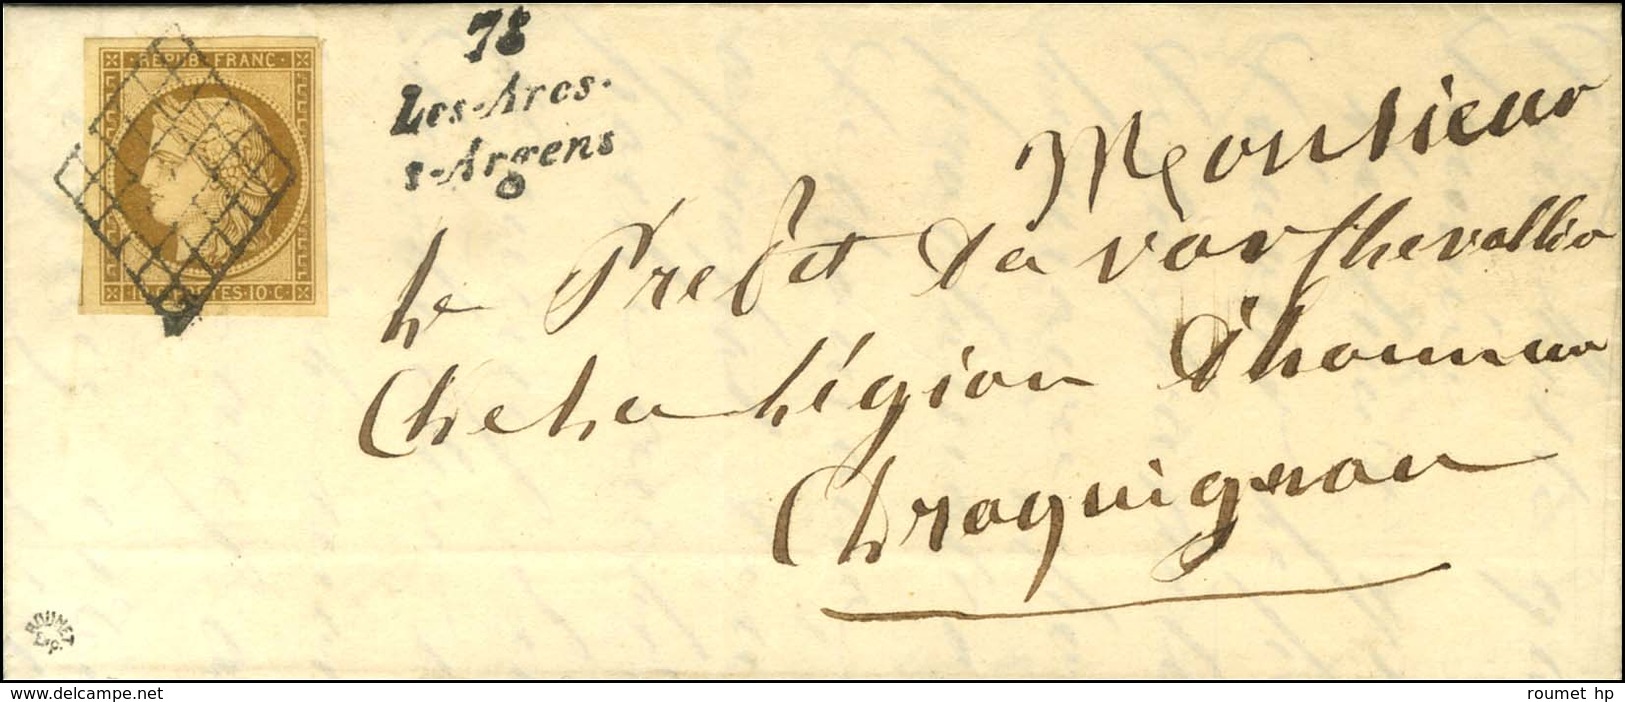 REPUB. FRANC.
10 · C.
78
Les-Arcs-
s-Argens
Monsieur
Le Prefet Du var Chevallier
De La Légion D'honneur
Draguignan
ROUMET
Exp.
www.delcampe.net
roumet hp